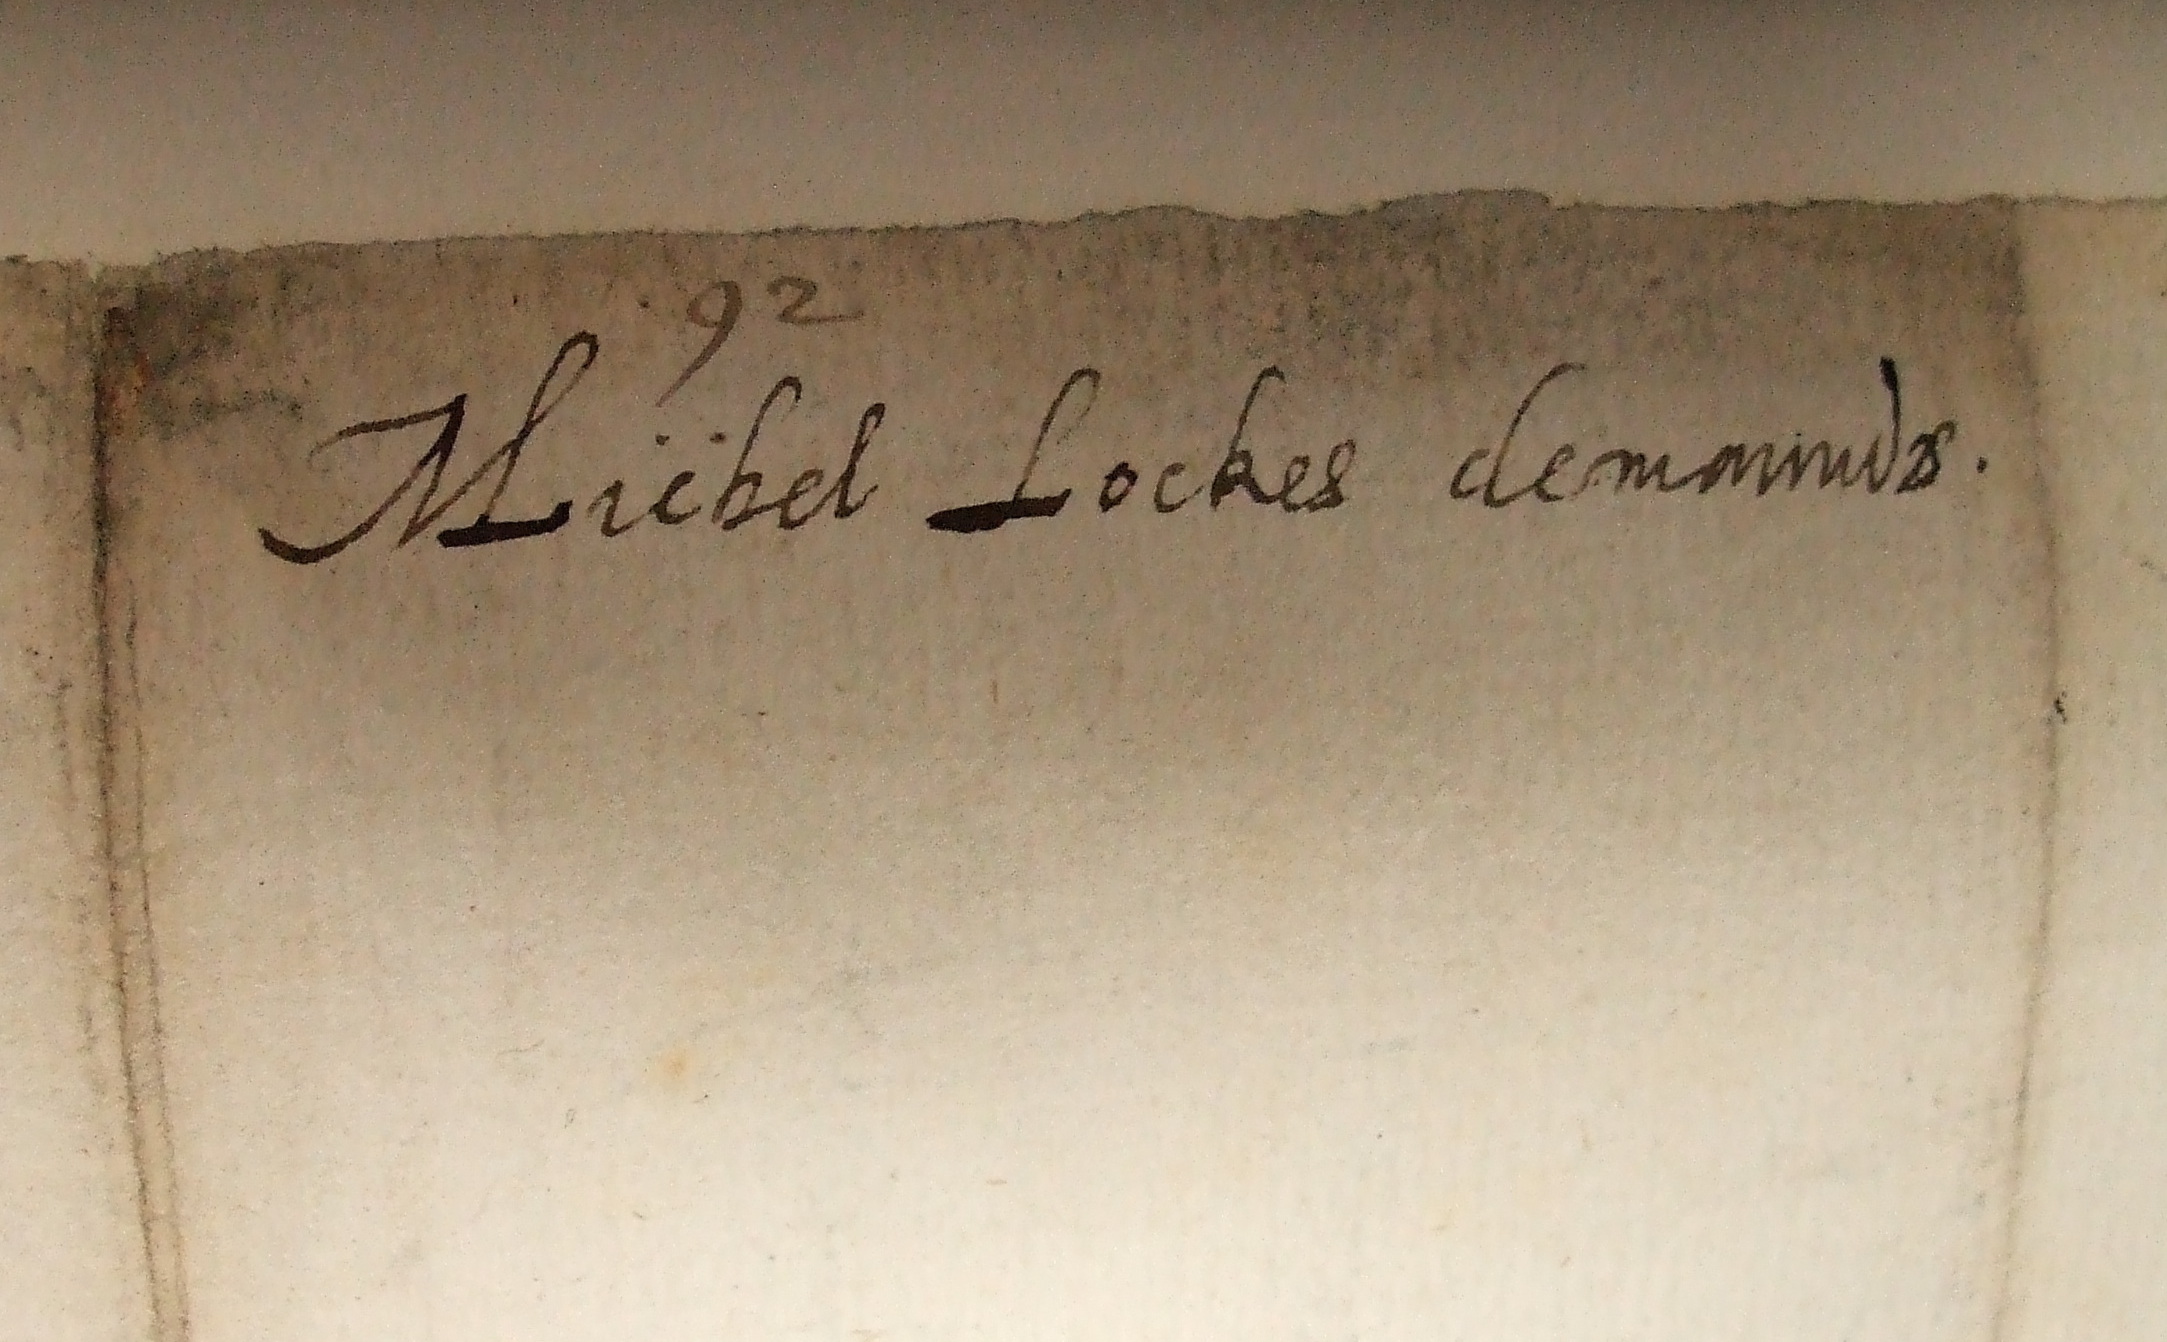 92
Michel Lockes demaunds.